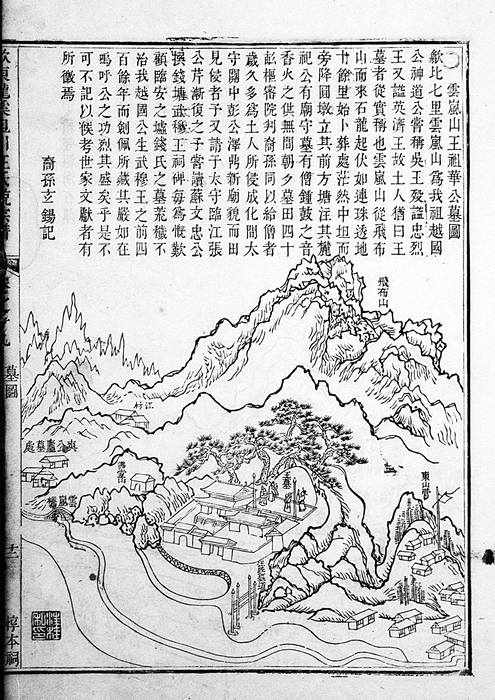 雲嵐山王祖華公墓圖
歙北七里雲嵐山為我祖越國
公神道公嘗稱吳王歿諡忠烈
王又諡英濟王故土人猶曰王
墓者從實稱也雲嵐山從飛布
山而來石龍起伏如連珠透地
十餘里始卜葬處茫然中坦而
旁降圓墩立其前方塘注其麓
祀公有廟守墓有僧鐘鼓之音
香火之供無間朝夕墓田四十
樞密院判裔孫同以給僧者
歲久多為土人所侵成化間太
守關中彭公澤鼎新廟貌而田
見侵者予又請于太守臨江張
公芹漸復之予嘗讀蘇文忠公
撰錢塘武穆王祠碑每為慨歎
顧臨安之墟錢氏之墓荒穢不
治我越國公生武穆王之前四
百餘年而劍佩所藏其嚴如在
嗚呼公之功烈其盛矣乎是不
可不記以俟考世家文獻者有
所徵焉
裔孫玄錫記
飛布山
江村
東山營
王墓
公廬墓處
雲嵐橋
墓圖